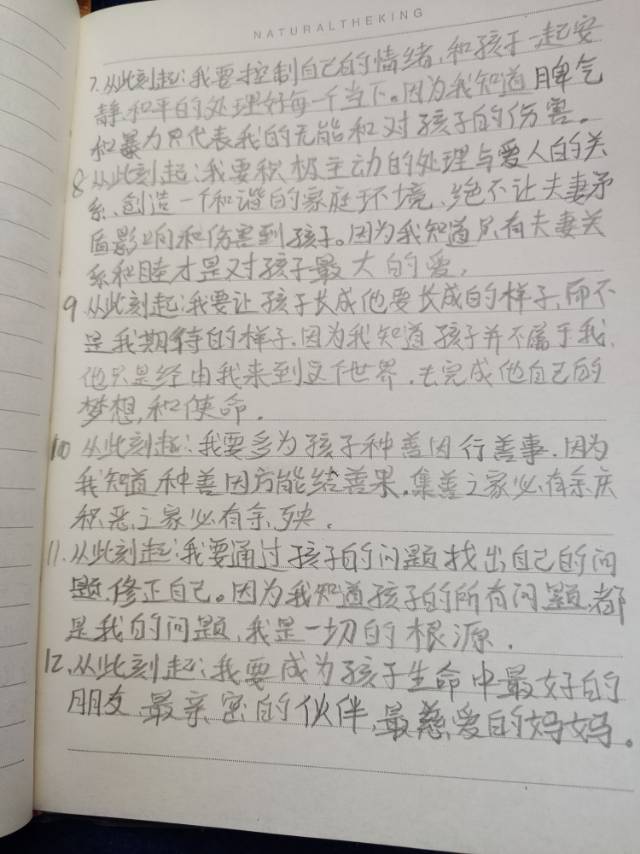 NATURALTHEKING
7.从此刻起:我要控制自己的情绪,和孩子一起安
静,和平的处理好每一个当下。因为我知道脾气
和暴力只代表我的无能和对孩子的伤害。
8从此刻起:我要积极主动的处理与爱人的关
系、创造一个和谐的家庭环境、绝不让夫妻矛
盾影响和伤害到孩子。因为我知道只有夫妻关
系和睦才是对孩子最大的爱,
9从此刻起:我要让孩子长成他要长成的样子,而不
是我期待的样子.因为我知道孩子并不属于我,
他只是经由我来到这个世界.去完成他自己的
梦想,和使命.
10 从此刻起:我要多为孩子种善因行善事.因为
我知道种善因方能结善果.集善之家必有余庆
积恶之家必有余殃.
11.从此刻起:我要通过孩子的问题找出自己的问
题,修正自己。因为我知道孩子的所有问题,都
是我的问题,我是一切的根源.
12.从此刻起:我要成为孩子生命中最好的
朋友,最亲密的伙伴,最慈爱的妈妈。